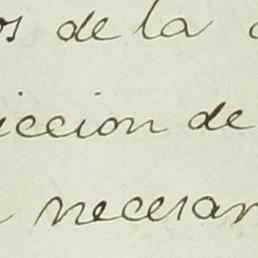 os de la
iccion de
necesar